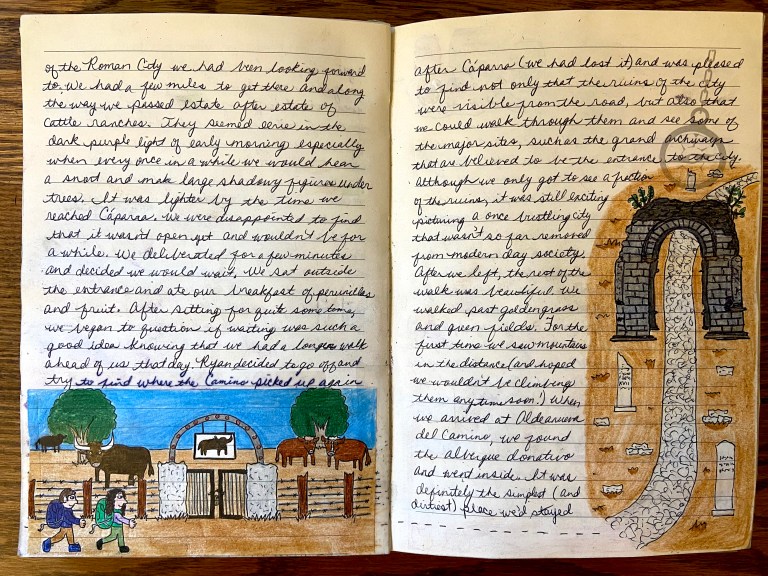 of the Roman City we had been looking forward
to. We had a few miles to get there and along
the way we passed estate after estate of
cattle ranches. They seemed eerie in the
dark purple light of early morning especially
when every once in a while we would hear
a snort and make large shadowy figures under
trees. It was lighter by the time we
reached Cáparra. We were disappointed to find
that it wasn't open yet and wouldn't be for
a while. We deliberated for a few minutes
and decided we would wait. We sat outside
the entrance and ate our breakfast of perunillas
and fruit. After sitting for quit some time,
we began to question if waiting was such a
good idea knowing that we had a longer walk
ahead of us that day. Ryan decided to go off and
try to find where the Camino picked up again
after Cáparra (we had lost it) and was pleased
to find not only that the ruins of the city
were visible from the road, but also that
we could walk through them and see some of
the major sites, such as the grand archways
that as believed to be the entrance to the city.
Although we only got to see a fraction
of the ruins, it was still exciting
picturing a once bustling city
that wasn't so far removed
from modern day society.
After we left, the rest of the
walk was beautiful. We
walked past golden grass
and green fields. For the
first time we saw mountains
in the distance (and hoped
we wouldn't be climbing
them any time soon!) When
we arrived at Aldeanueva
del Camino, we found
the albergue donativo
and went inside. It was
definitely the simplest (and
dirtiest) place we'd stayed